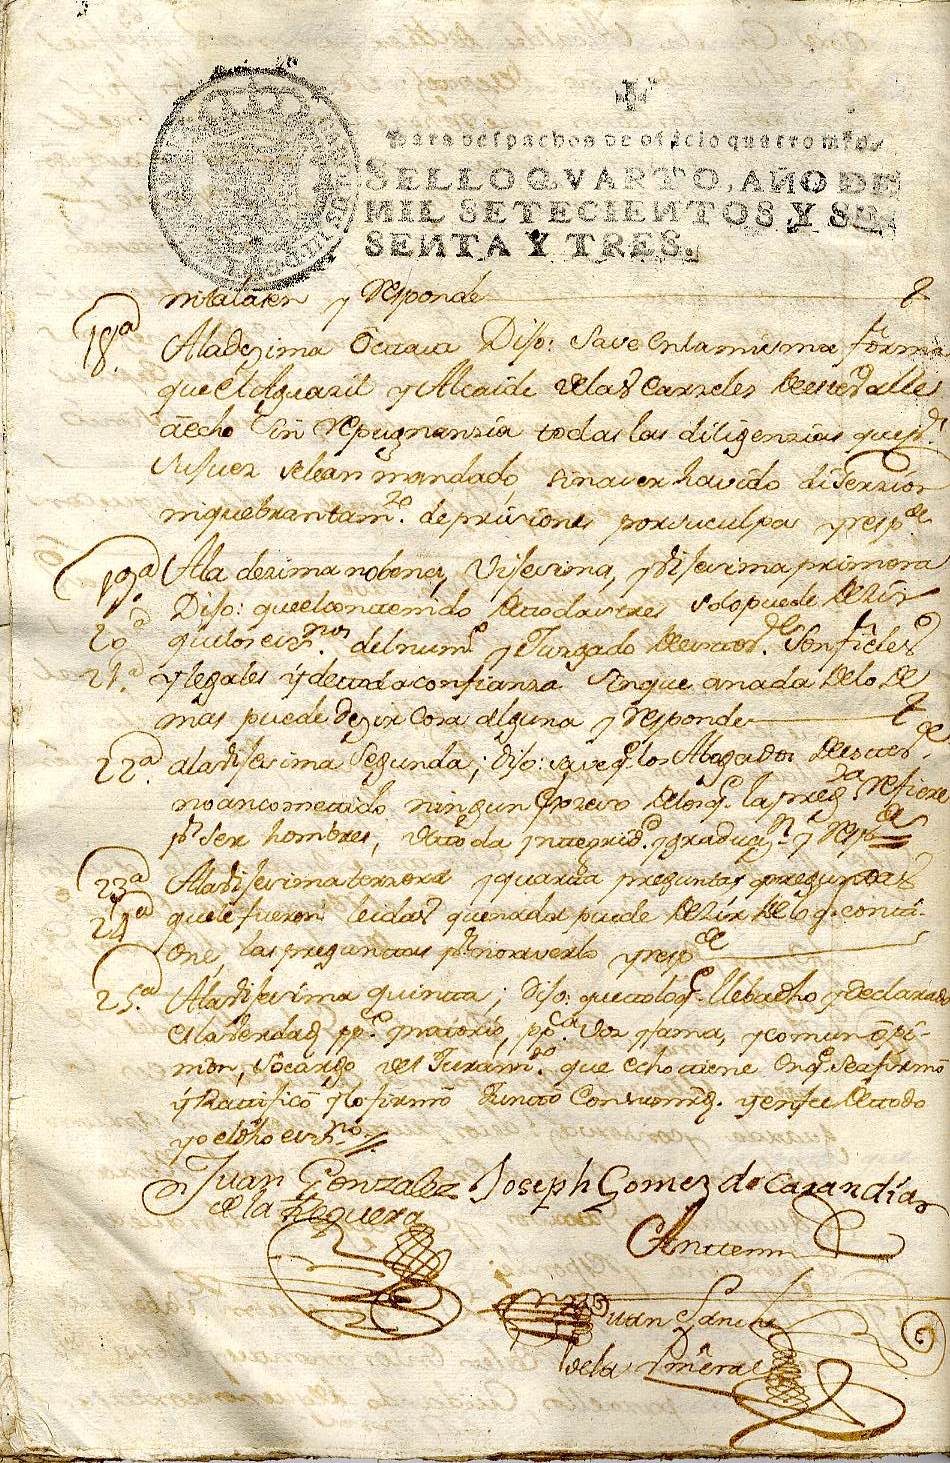 Para despachos de oficio quatro mrs.
SELLO QVARTO, AÑO DE
MIL SETECIENTOS Y SE-
SENTA Y TRES.
y Responde
18ª
Aladezima Octava Dijo: Save enlamisma forma
que el Alguazil y Alcaide delas Carzeles deeste valle
aecho sin repugnanzia todas las diligenzias que pr.
sujuez selean mandado, sinaver havido diserzion
niquebrantamto. de prisiones por su culpa y respde
19ª Ala dezima nobena, Vijesima, y Vijesima primera
20ª Dijo: que el contenido detodas tres solo puede dezir
21ª quelos essnos. del numo. y Juzgado deeste Son fieles
y legales y detoda confianza Sinque anada delo de
mas pueda dezir cosa alguna y responde
22ª alaVijesima Segunda; Dijo: save q. los Abogados deeste
noancometido ningun delosq. la pregta Refiere
pr. Ser hombres, detoda yntegridd. y graduazn. y Respde
23ª AlaVijesima terzera y quarta preguntas
24ª quele fueron leidas que nada puede dezir delo q. conti-
ene, las preguntas pr. no saverlo y respde
25ª AlaVijesima quinta; Dijo: que todo loq. lleba dho y declarado
es laverdad ppco. y notorio, ppca. voz y fama, y comun opi-
nion, Socargo del Juramto. que echo tiene enq. seafirmo
y Ratifico y lo firmo Junto con su mrd. y enfee detodo
yo el dho essno.
Juan Gonzalez Joseph Gomez de Carandia
de la Reguera
Antemi
Juan Sanchez
dela